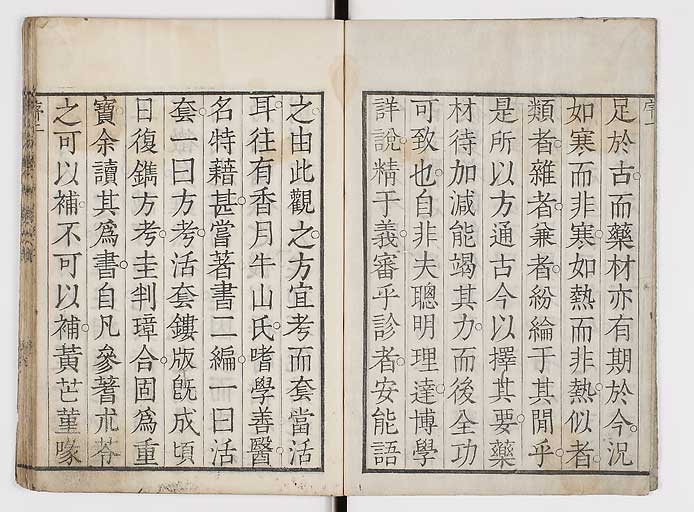 序一
足於古而藥材亦有期於今況
如寒而非寒如熱而非熱似者
類者雜者兼者紛綸于其間乎
是所以方通古今以擇其要藥
材待加減能竭其力而後全功
可致也自非夫聰明理達博學
詳說精于義審乎診者安能語
之由此觀之方宜考而套當活
耳往有香月牛山氏嗜學善醫
名特藉甚嘗著書二編一曰活
套一曰方考活套鏤版既成頃
日復鐫方考圭判璋合固爲重
寶余讀其爲書自凡參蓍朮苓
之可以補不可以補黃芒堇喙
序二